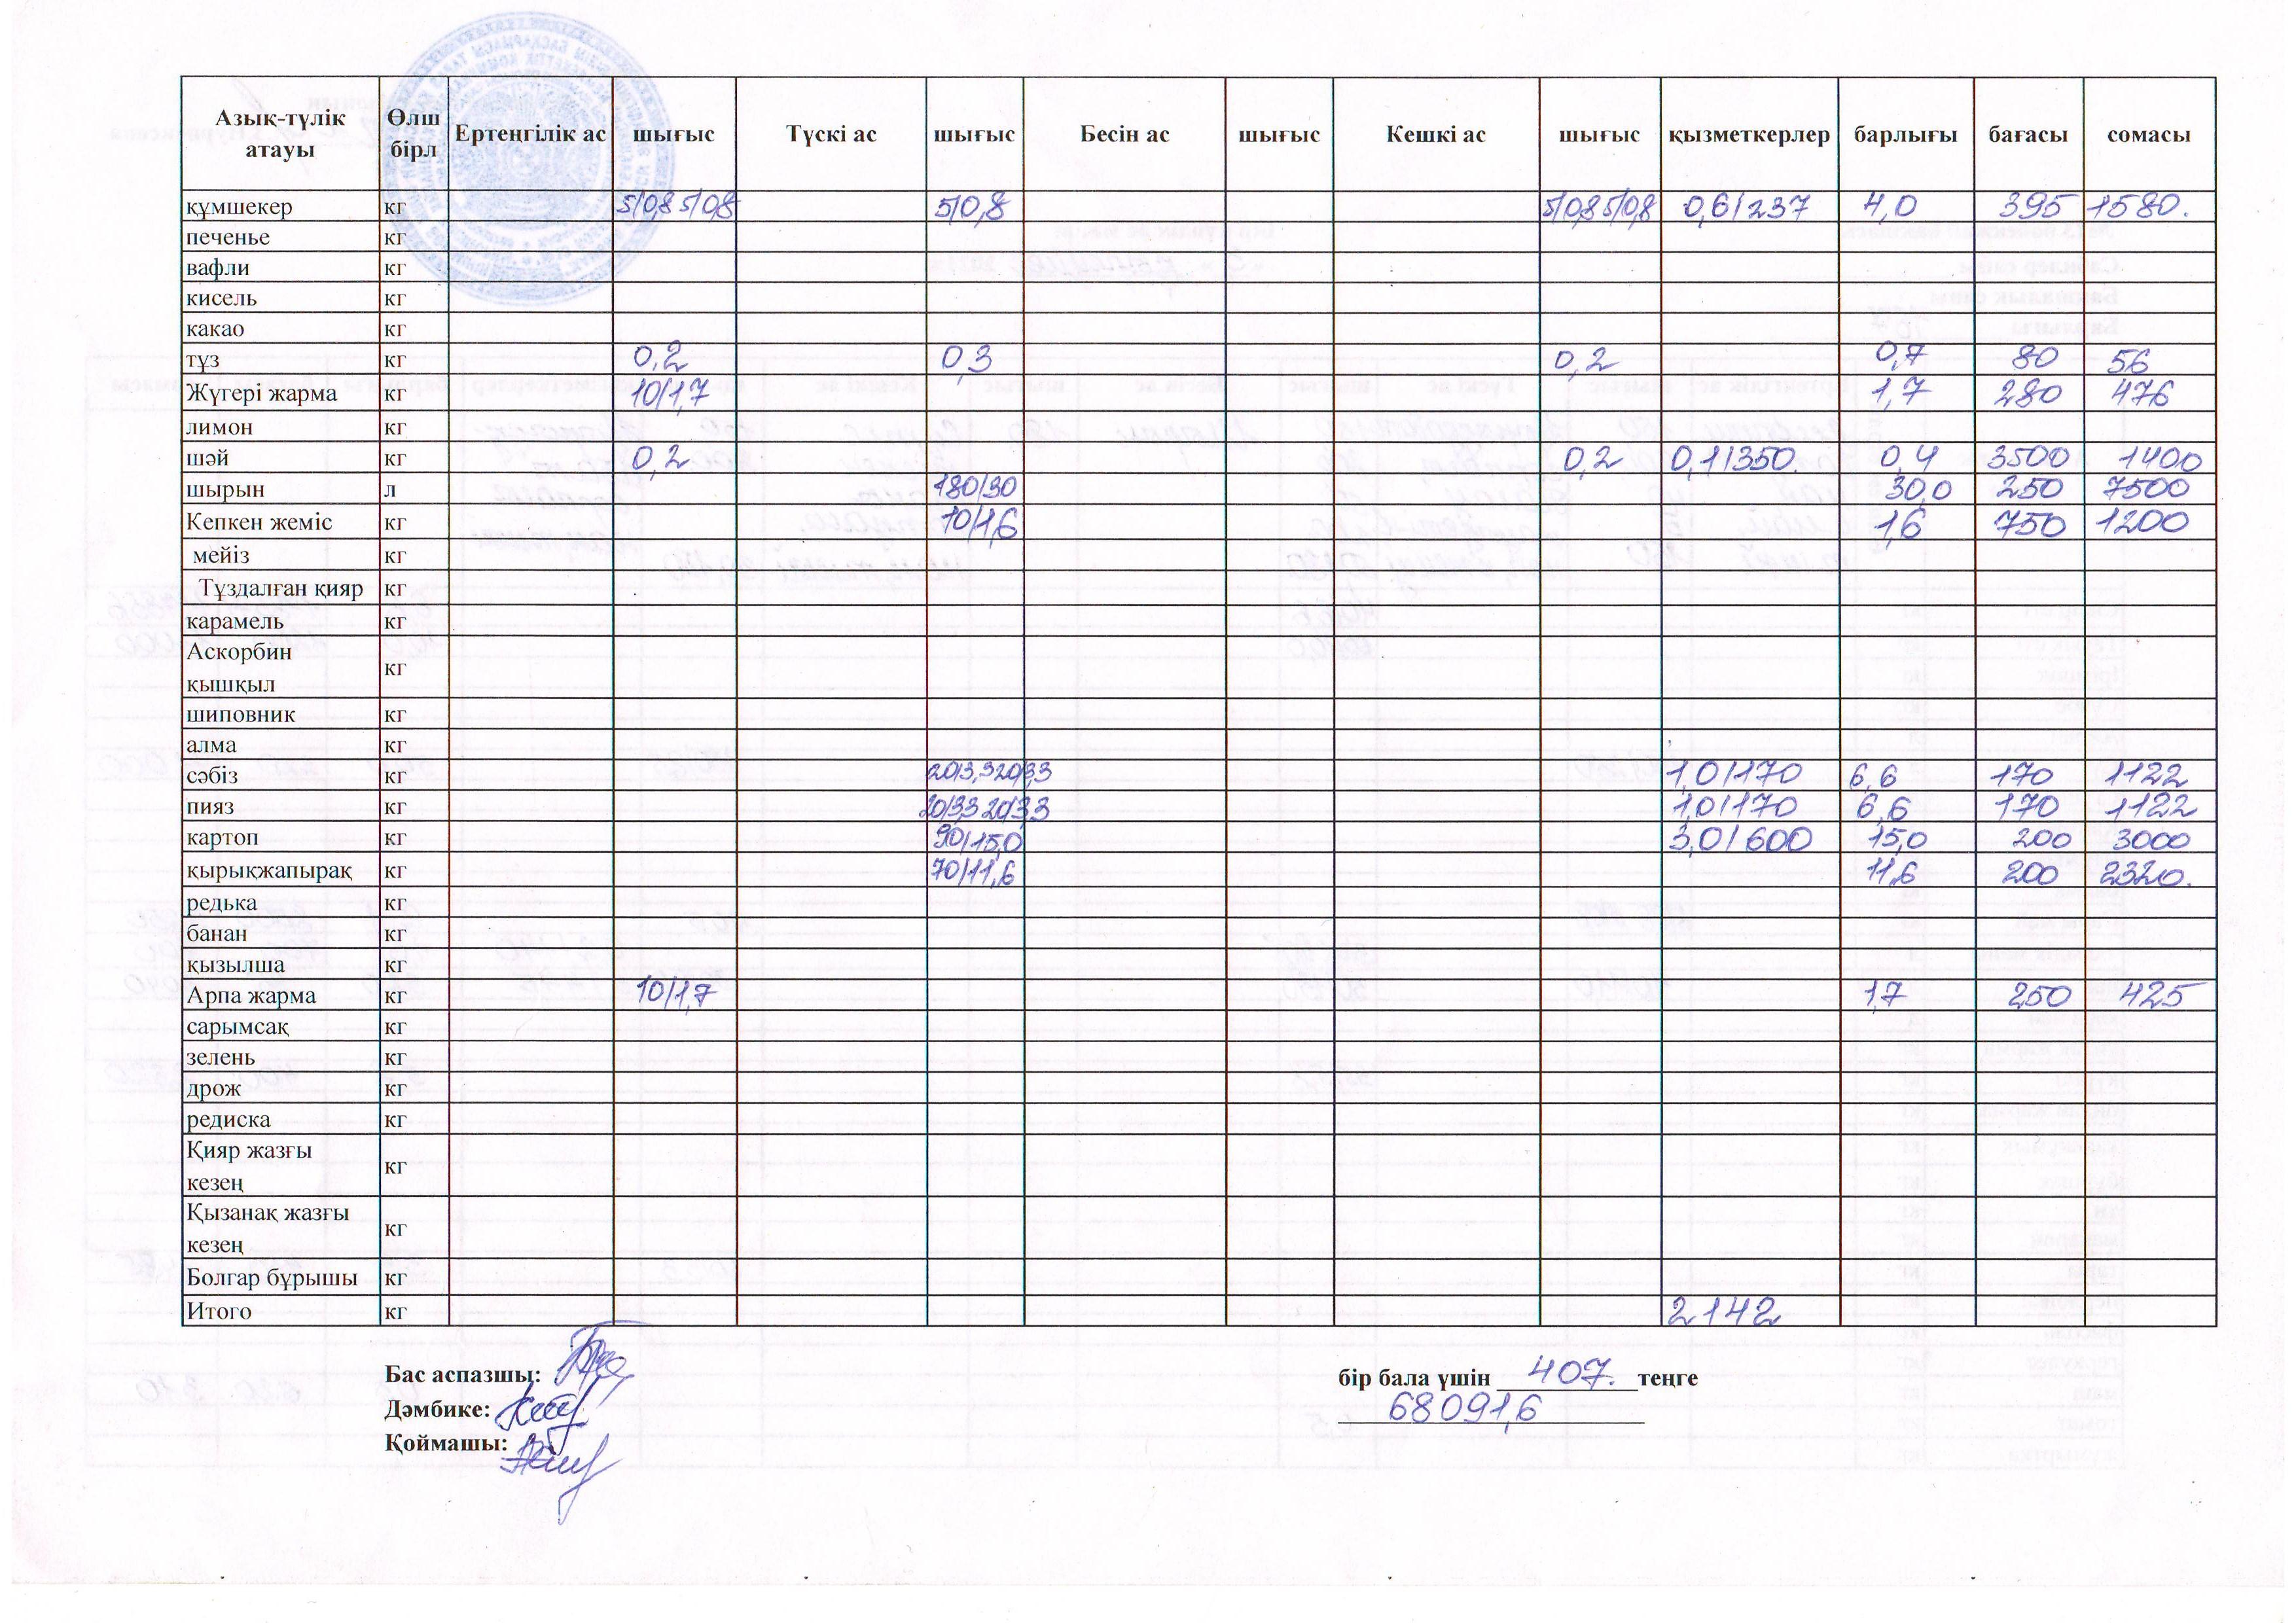 Азық-түлік атауы Өлш бірл Ертеңгілік ас шығыс Түскі ас шығыс Бесін ас шығыс Кешкі ас шығыс қызметкерлер барлығы бағасы сомасы
құмшекер кг 5/0,8 5/0,8 5/0,8 5/0,8 5/0,8 0,6/237 4,0 395 1580.
печенье кг
вафли кг
кисель кг
какао кг
тұз кг 0,2 0,3 0,2 0,7 80 56
Жүгері жарма кг 10/1,7 1,7 280 476
лимон кг
шәй кг 0,2 0,2 0,1/350. 0,4 3500 1400
шырын л 180/30 30,0 250 7500
Кепкен жеміс кг 10/1,6 1,6 750 1200
мейіз кг
Тұздалған қияр кг
карамель кг
Аскорбин қышқыл кг
шиповник кг
алма кг
сәбіз кг 20/3,3 20/3,3 1,0/170 6,6 170 1122
пияз кг 20/3,3 20/3,3 1,0/170 6,6 170 1122
картоп кг 90/15,0 3,0/600 15,0 200 3000
қырықжапырақ кг 70/11,6 11,6 200 2320.
редька кг
банан кг
қызылша кг
Арпа жарма кг 10/1,7 1,7 250 425
сарымсақ кг
зелень кг
дрож кг
редиска кг
Қияр жазғы кезең кг
Қызанақ жазғы кезең кг
Болгар бұрышы кг
Итого кг 2142
Бас аспазшы: бір бала үшін 407. теңге
Дәмбике: 68091,6
Қоймашы: